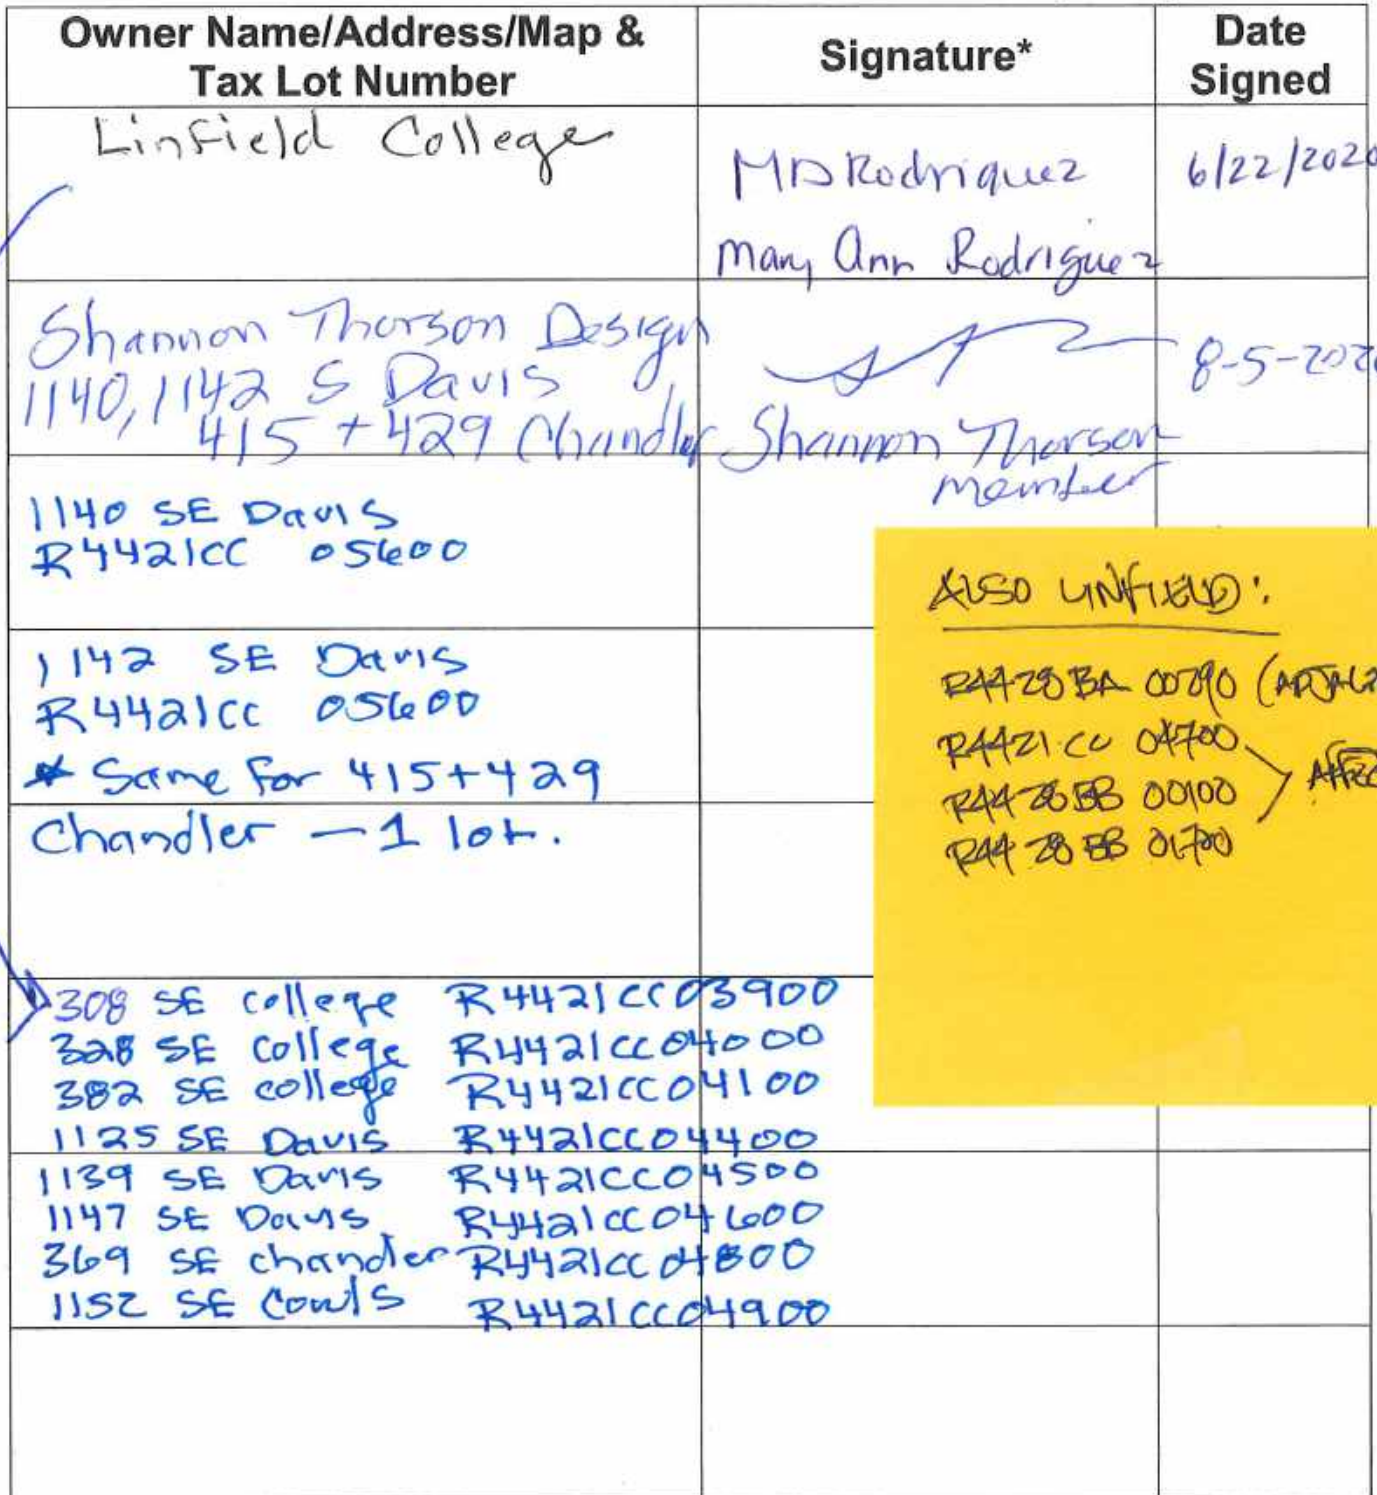 Owner Name/Address/Map &
Tax Lot Number
Signature*
Date
Signed
Linfield College
MARodriguez
Mary Ann Rodriguez
6/22/2020
Shannon Thorson Design
1140, 1142 S Davis
415 + 429 Chandler
Shannon Thorson
member
8-5-202
1140 SE Davis
R4421CC 05600
1142 SE Davis
R4421CC 05600
* Same for 415+429
Chandler - 1 lot.
308 SE college R4421CC03900
328 SE college R4421CC04000
382 SE college R4421CC04100
1125 SE Davis R4421CC04400
1139 SE Davis R4421CC04500
1147 SE Davis R4421CC04600
369 SE chandler R4421CC04800
1152 SE Cowls R4421CC04900
ALSO LINFIELD:
R4428BA
R4421CC 04700
R4428BB 00100
R4428BB 01700